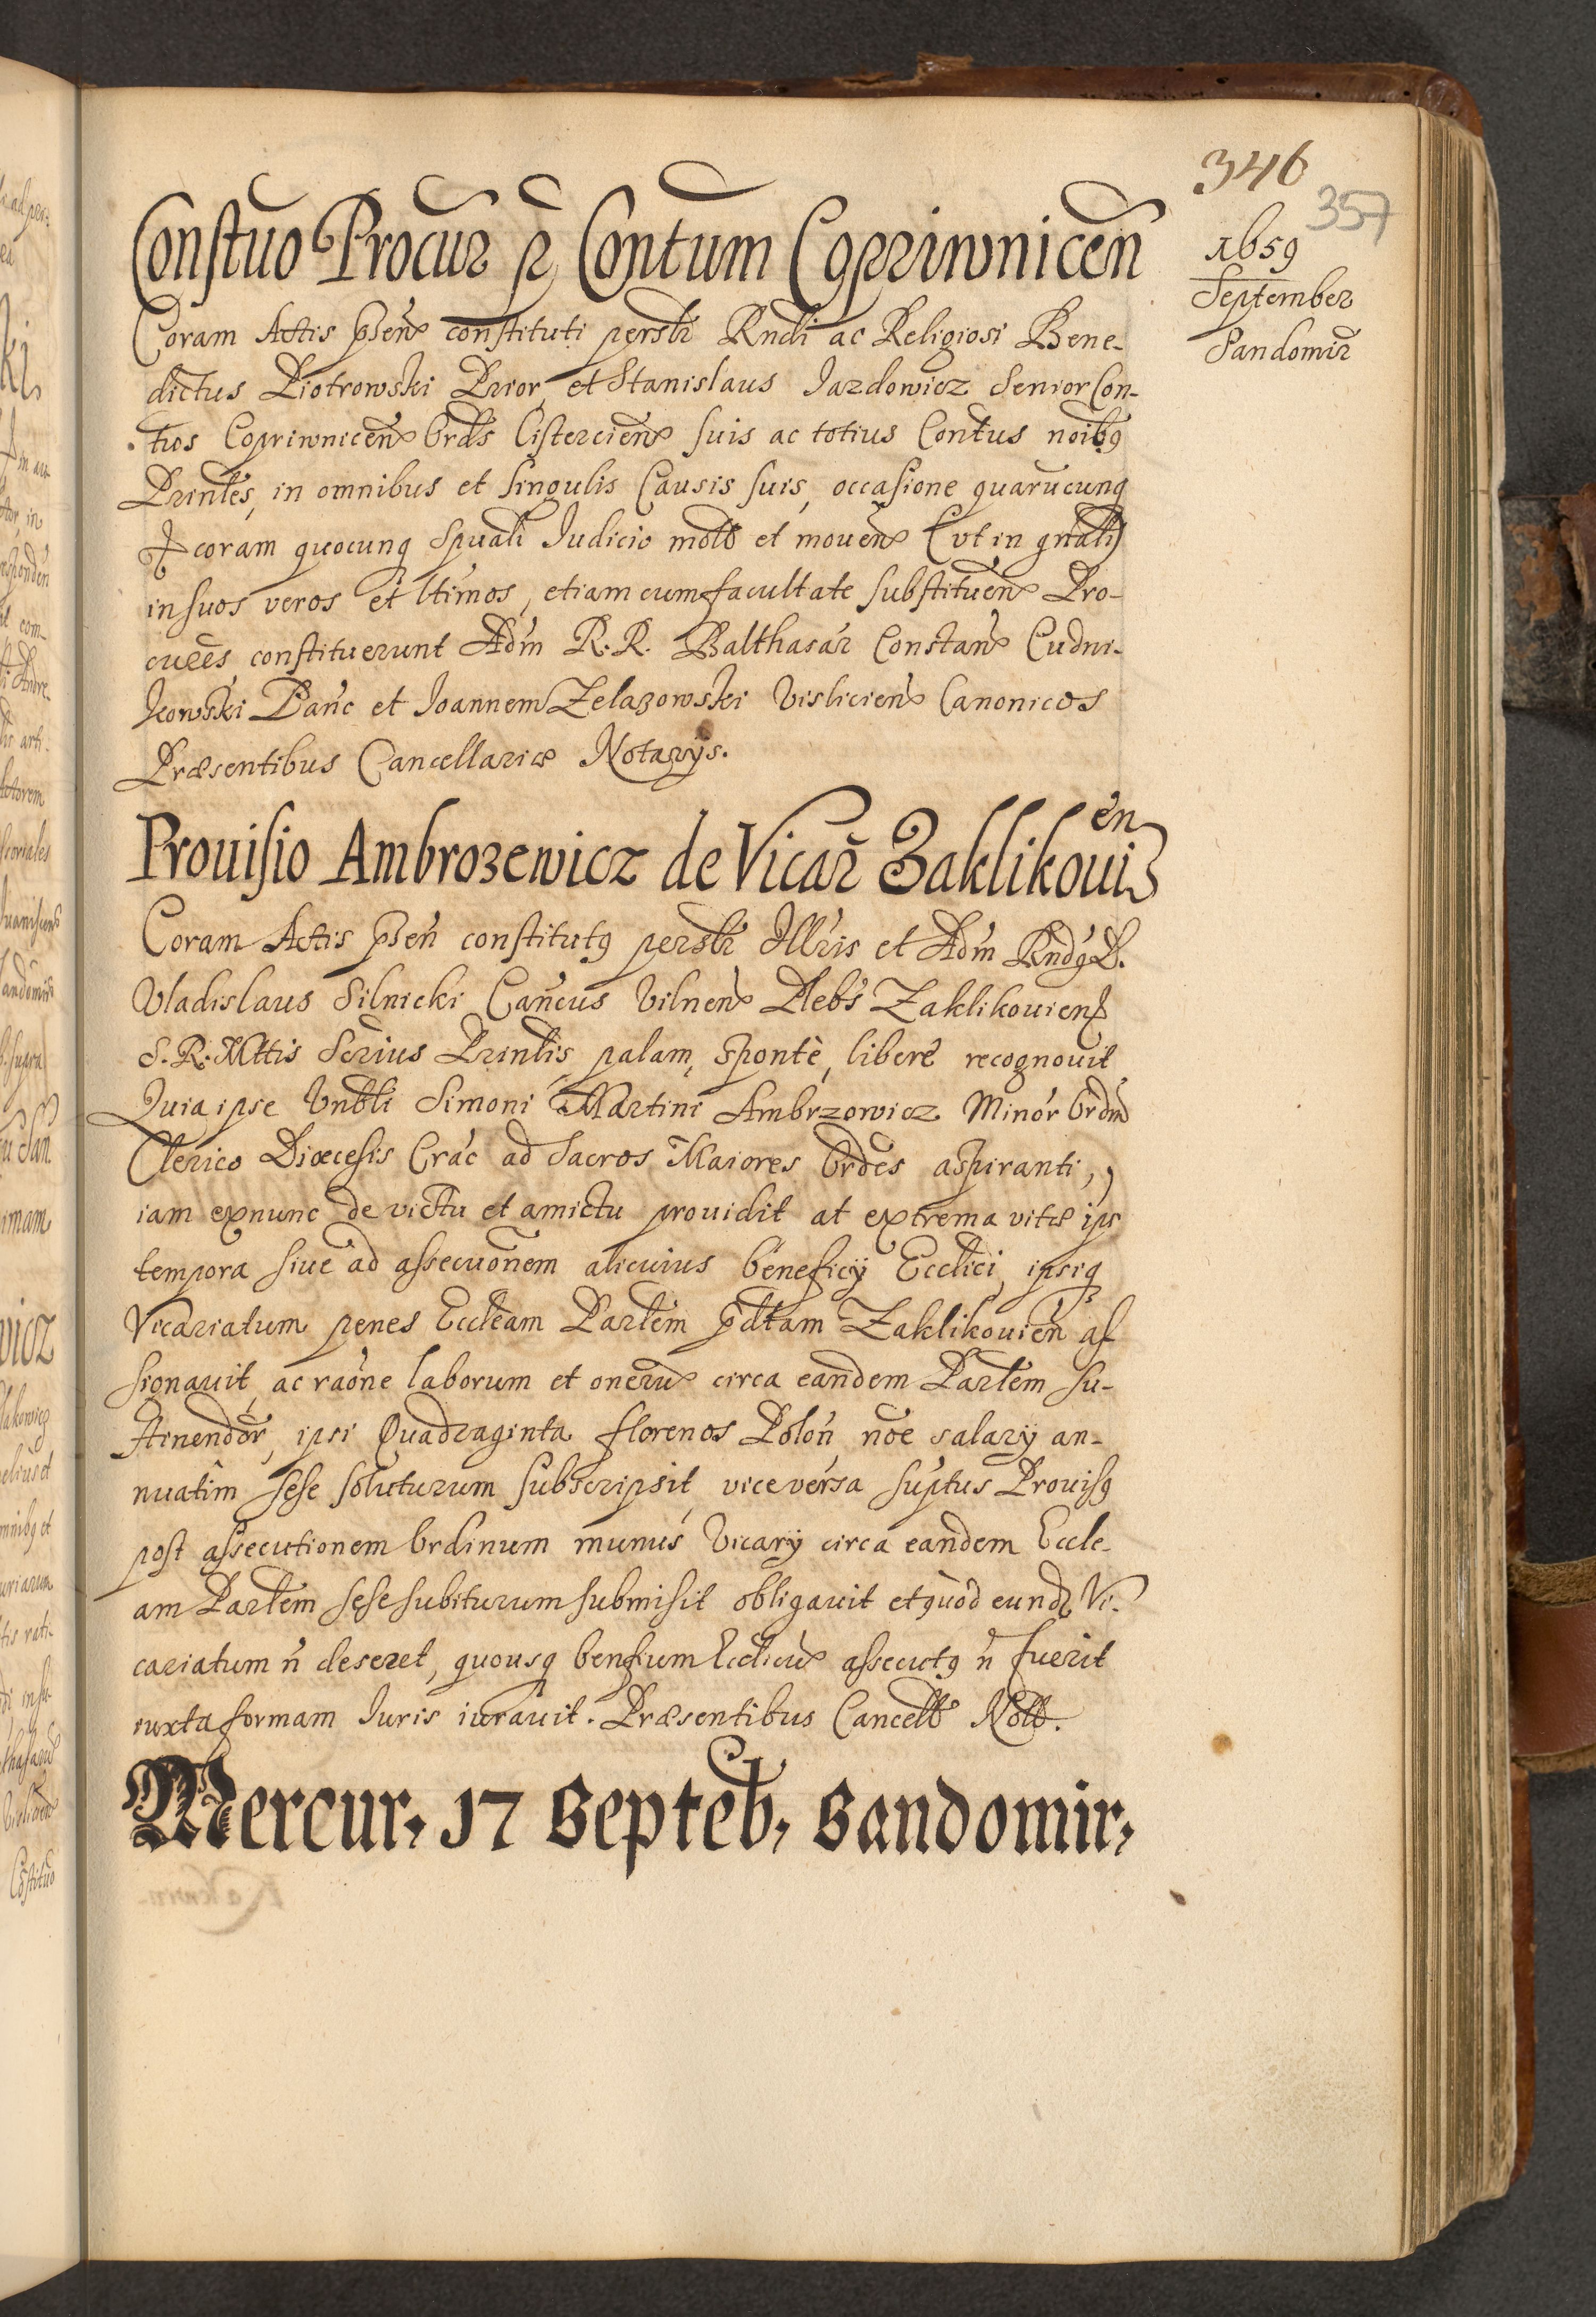 346
357
1659
September
Sandomir
Constuo Procur p Contum Copriwnicen
Coram Actis psen constituti persolr Rndi ac Religiosi Bene-
dictus Piotrowski Prior, et Stanislaus Jazdowicz Senior Con-
tus Copriwnicen Ords Cistercien suis ac totius Contus noibq
Prntes, in omnibus et singulis Causis suis, occasione quarucunq
et coram quocunq Spuali Iudicio motis et mouen (vt in gnali)
in suos veros et ltimos, etiam cum facultate substituen Pro-
cures constituerunt Adm R.R. Balthasar Constan Cudni-
kowski Panc et Joannem Zelazowski Vislicien Canonicos
Præsentibus Cancellariæ Notarijs.
Prouisio Ambrozewicz de Vicar Zaklikouien
Coram Actis psen constitutq persolr Illris et Adm Rndq D.
Vladislaus Silnicki Cancus Vilnen Plebs Zaklikouien
S. R. Mttis Scrius Printis palam, sponte, libere recognouit
Quia ipse Vnbli Simoni Martini Ambrzowicz Minor Ordin
Clerico Dioecesis Crac ad Sacros Maiores Ordes aspiranti,
iam exnunc de victu et amictu prouidit at extrema vitæ ips
tempora siue ad assecuonem alicuius beneficij Ecclici, ipsiq
Vicariatum penes Eccleam Parlem pdtam Zaklikouien as
signauit, ac raone laborum et oneru circa eandem Parlem su-
stinendor, ipsi Quadraginta florenos Polon noe salarij an-
nuatim sese soluturum subscripsit, vice versa suptus Prouisq
post assecutionem Ordinum munus Vicarij circa eandem Eccle-
am Parlem sese subiturum submisit obligauit et quod eund Vi-
cariatum n deseret, quousq benfium Ecclicu assecutq n fuerit
iuxta formam Iuris iurauit. Præsentibus Cancell Nott.
Mercur. 17 Septeb. Sandomir.